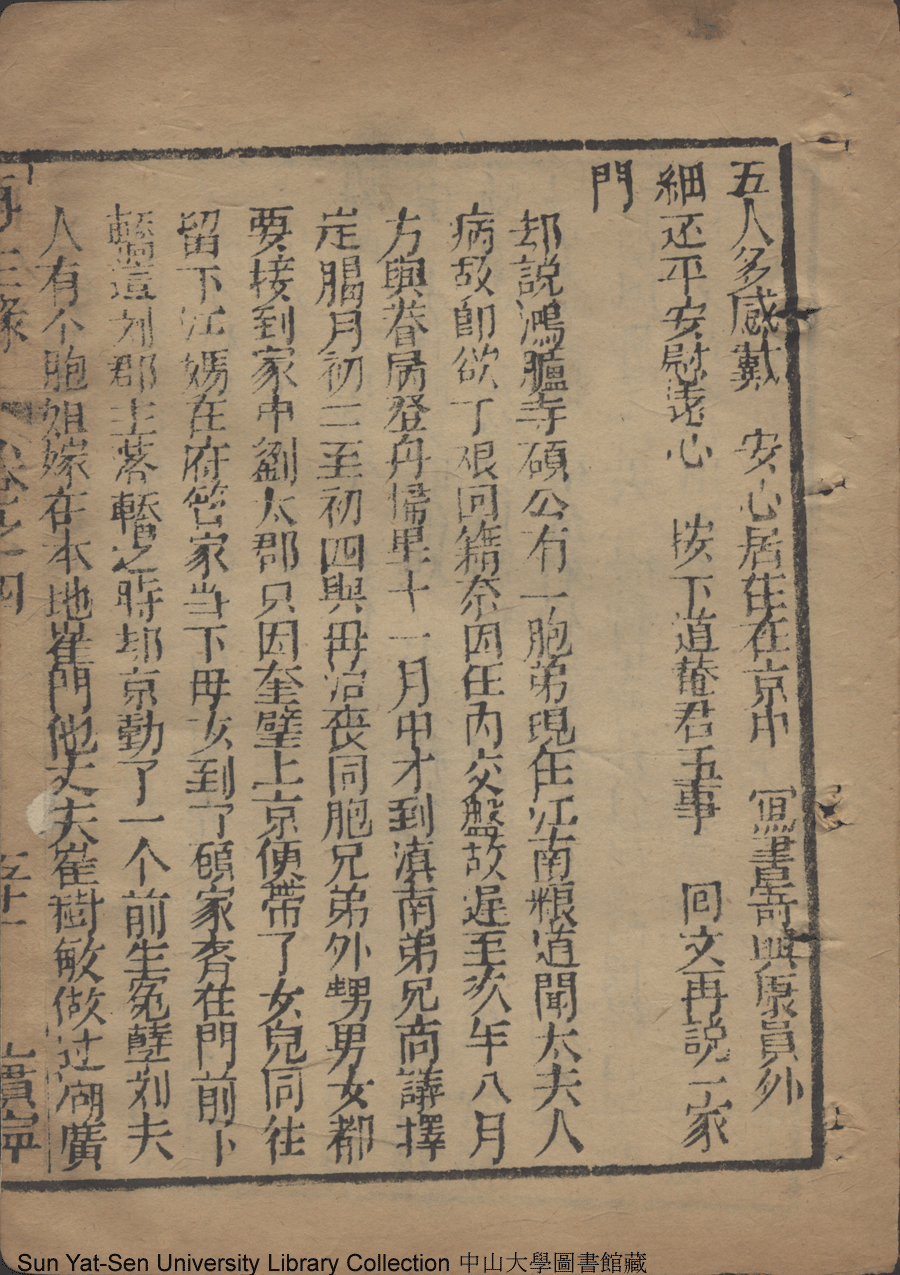 五人多感戴　安心居住在京中　寫書寄與康員外
細还平安慰遠心　按下道菴君王事　回文再説一家
門
却説鴻臚寺碩公有一胞弟現任江南粮道聞太夫人
病故即欲丁艰回籍奈因任內交盤故遅至次年八月
方與眷属登舟㱕里十一月中才到滇南弟兄商議擇
定臈月初三至初四與毋治喪同胞兄弟外甥男女都
要接到家中劉太郡只因奎璧上京便帶了女兒同往
留下江媽在府管家当下毋女到了碩家齐在門前下
轎這刘郡主落轎之時却京動了一个前生冤孽刘夫
人有个胞姐嫁在本地崔門他丈夫崔樹敏做过湖廣
再生縁　卷之四　五十一　貫字
Sun Yat-Sen University Library Collection 中山大學圖書館藏